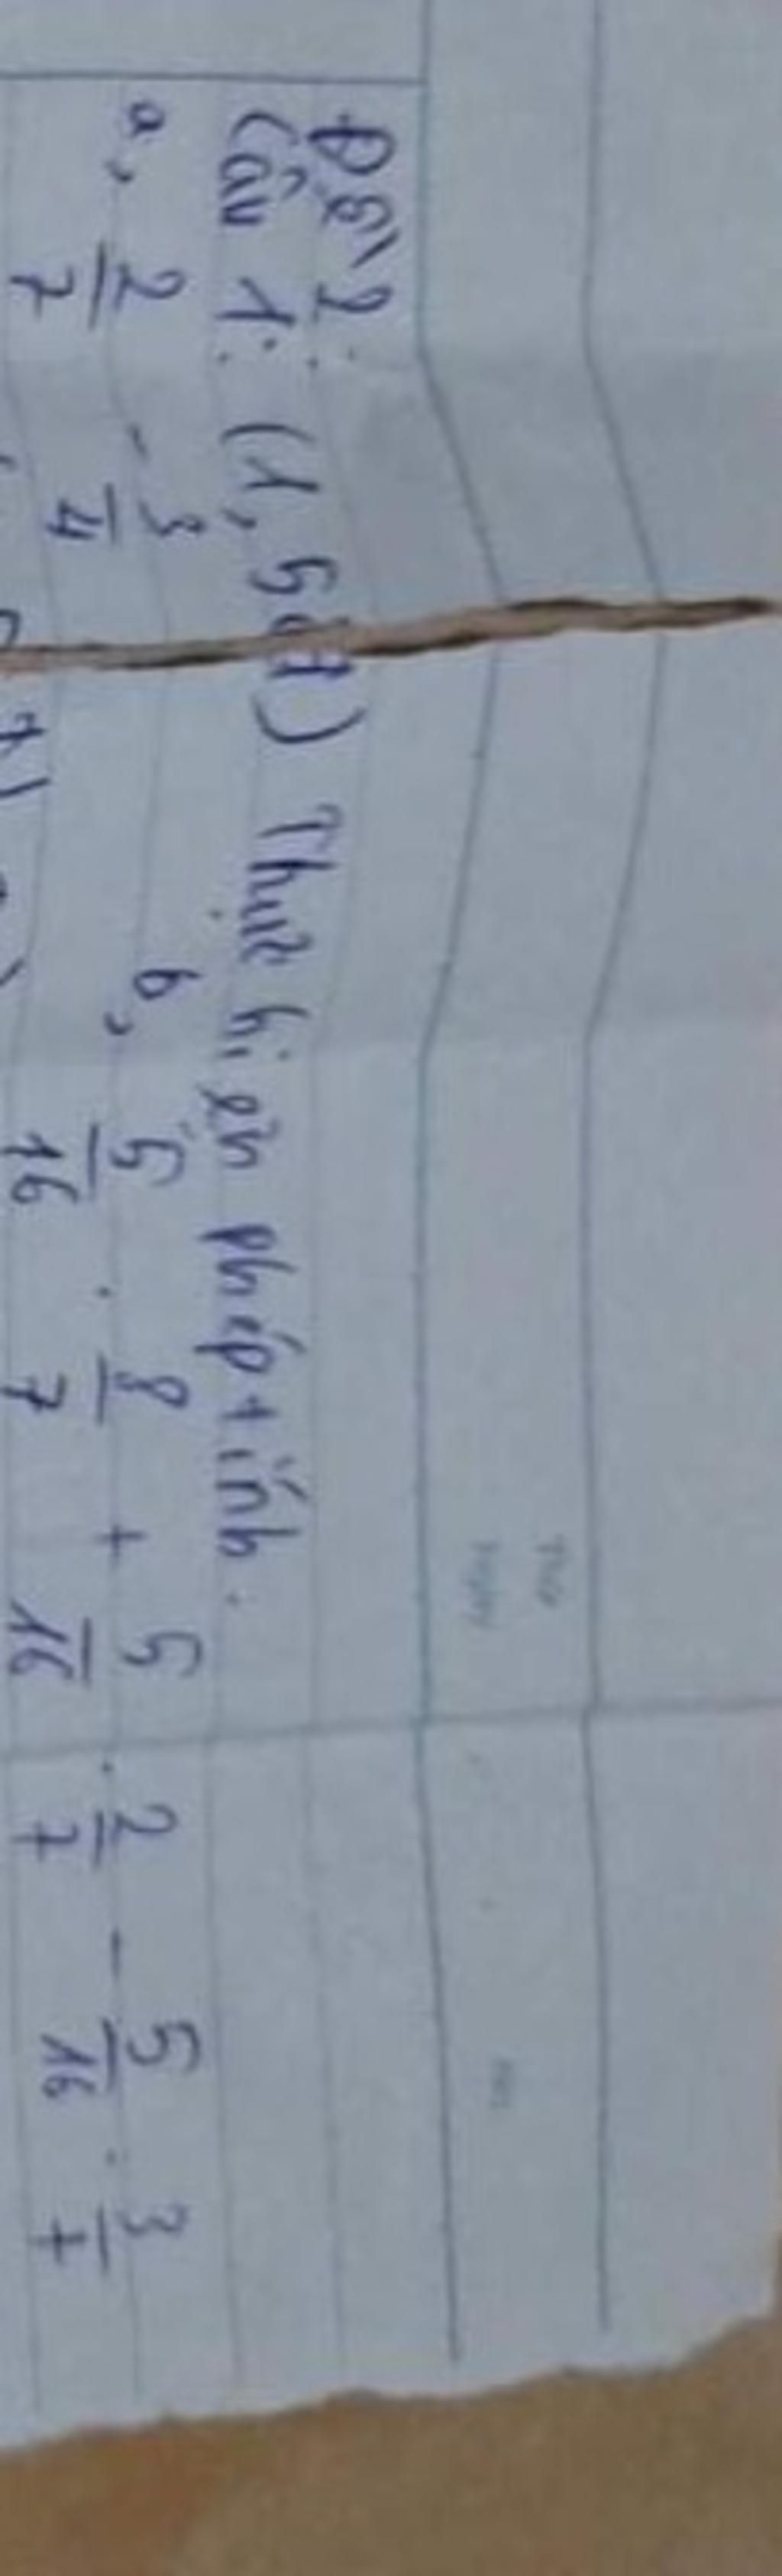 Đề 2:
Câu 1: (1,5đ) Thực hiện phép tính.
a, 2/7 - 3/4 b, 5/16 . 8/7 + 5/16 . 2/7 - 5/16 . 3/7